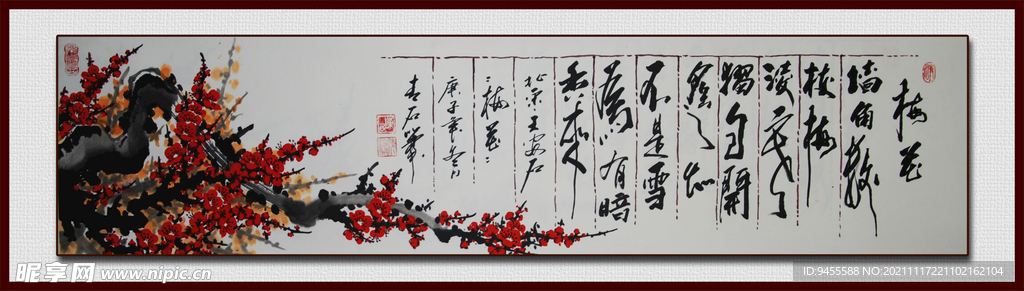 梅花
墙角数
枝梅
凌寒
獨自開
遥知
不是雪
為有暗
香来
北宋王安石
梅花
庚子年冬月
昵享网 www.nipic.cn
ID:9455588 NO:20211117221102162104